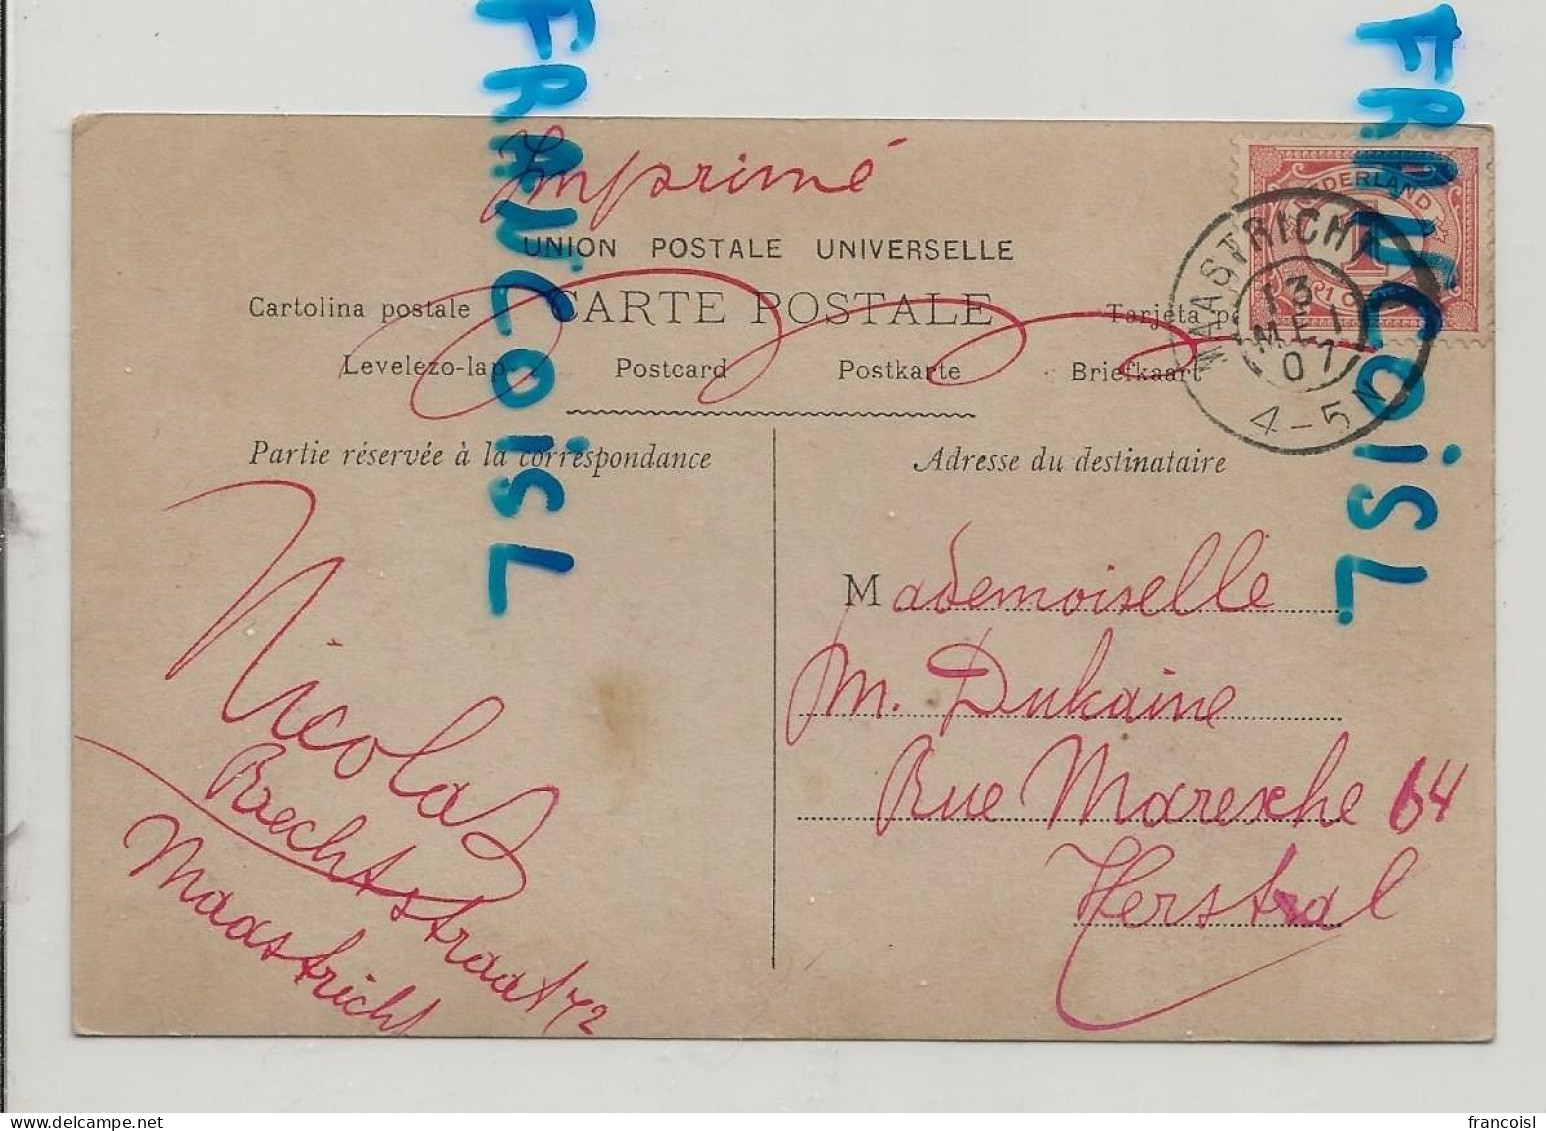 FRANCOiSL
FRANCOiSL
Imprimé
UNION POSTALE UNIVERSELLE
Cartolina postale CARTE POSTALE Tarjeta p
Levelezo-lap Postcard Postkarte Briefkaart
NEDERLAND
1
MAASTRICHT
13
MEI
07
4-5N
Partie réservée à la correspondance
Adresse du destinataire
Mademoiselle
M. Dukaine
Rue Maresche 64
Herstal
Nicolas
Raechtstraat 72
Maastricht
francoisl